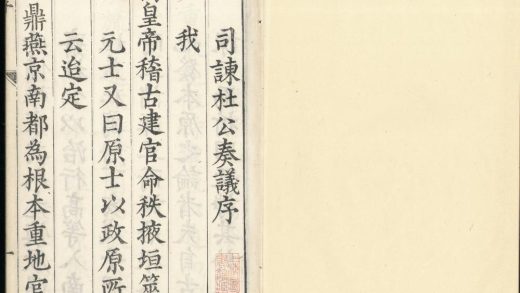 司諫杜公奏議序
我
皇帝稽古建官命秩掖垣
元士又曰原士以政原所
云迨定
鼎燕京南都為根本重地官